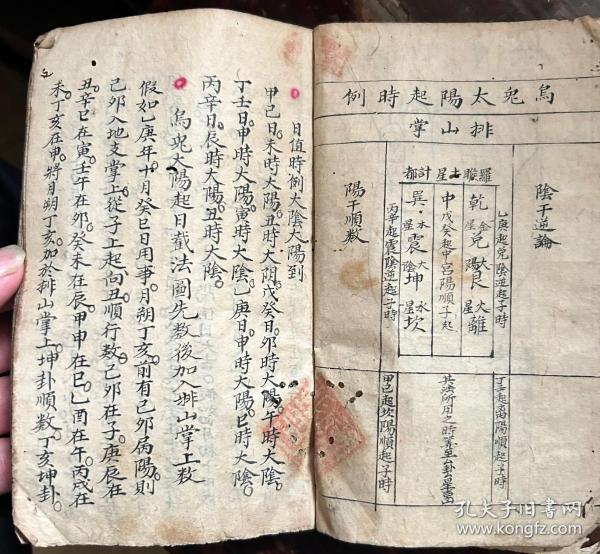 烏兎太陽起時例
排山掌
陰干逆論
乙庚起兌陰逆起子時
丁壬起离陽順起子時
羅睺土星計都
乾金星兌太陽艮火星離
中戊癸起中宮陽順子起
巽木星震太陰坤水星坎
其法所用之時筭至卦
丙辛起震陰逆起子時
甲己起坎陽順起子時
陽干順數
日值時例太陰太陽到
甲己日未時大陽丑時大阴戊癸日卯時大陽午時大陰
丁壬日申時大陽寅時大陰乙庚日申時大陽巳時大陰
丙辛日辰時大陽丑時大陰
烏兎太陽起日截法圖先数後加入排山掌上数
假如乙庚年十月癸巳日用事月朔丁亥前有己卯属陽則
己卯入地支掌上從子上起向丑順行数己卯在子庚辰在
丑辛巳在寅壬午在卯癸未在辰甲申在巳乙酉在午丙戌在
未丁亥在申將月朔丁亥加於排山掌上坤卦順数丁亥坤卦
孔夫子旧書网
www.kongfz.com